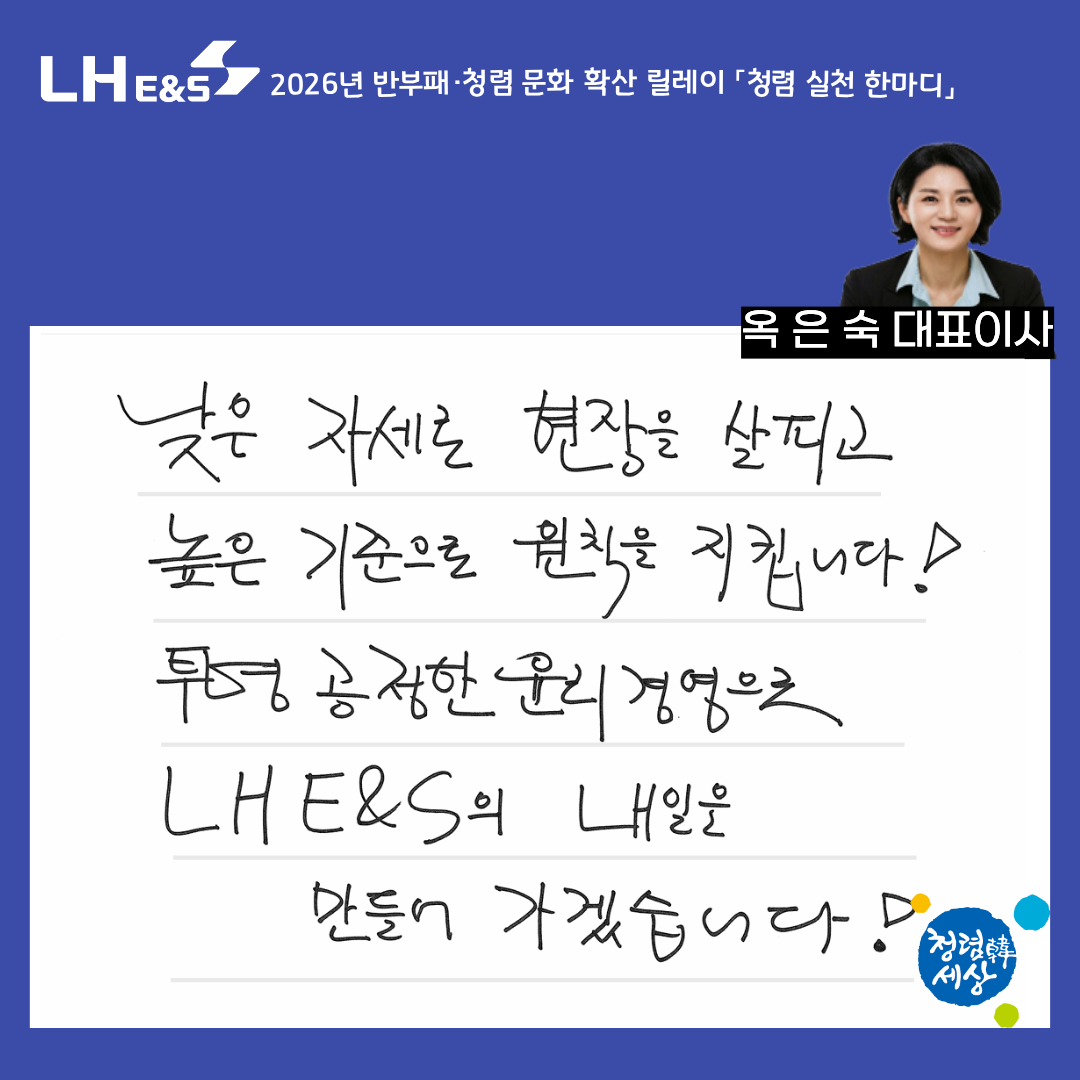 LH E&S 2026년 반부패·청렴 문화 확산 릴레이 「청렴 실천 한마디」
옥 은 숙 대표이사
낮은 자세로 현장을 살피고
높은 기준으로 원칙을 지킵니다!
투명 공정한 윤리경영으로
LH E&S의 내일을
만들어 가겠습니다!
청렴韓
세상